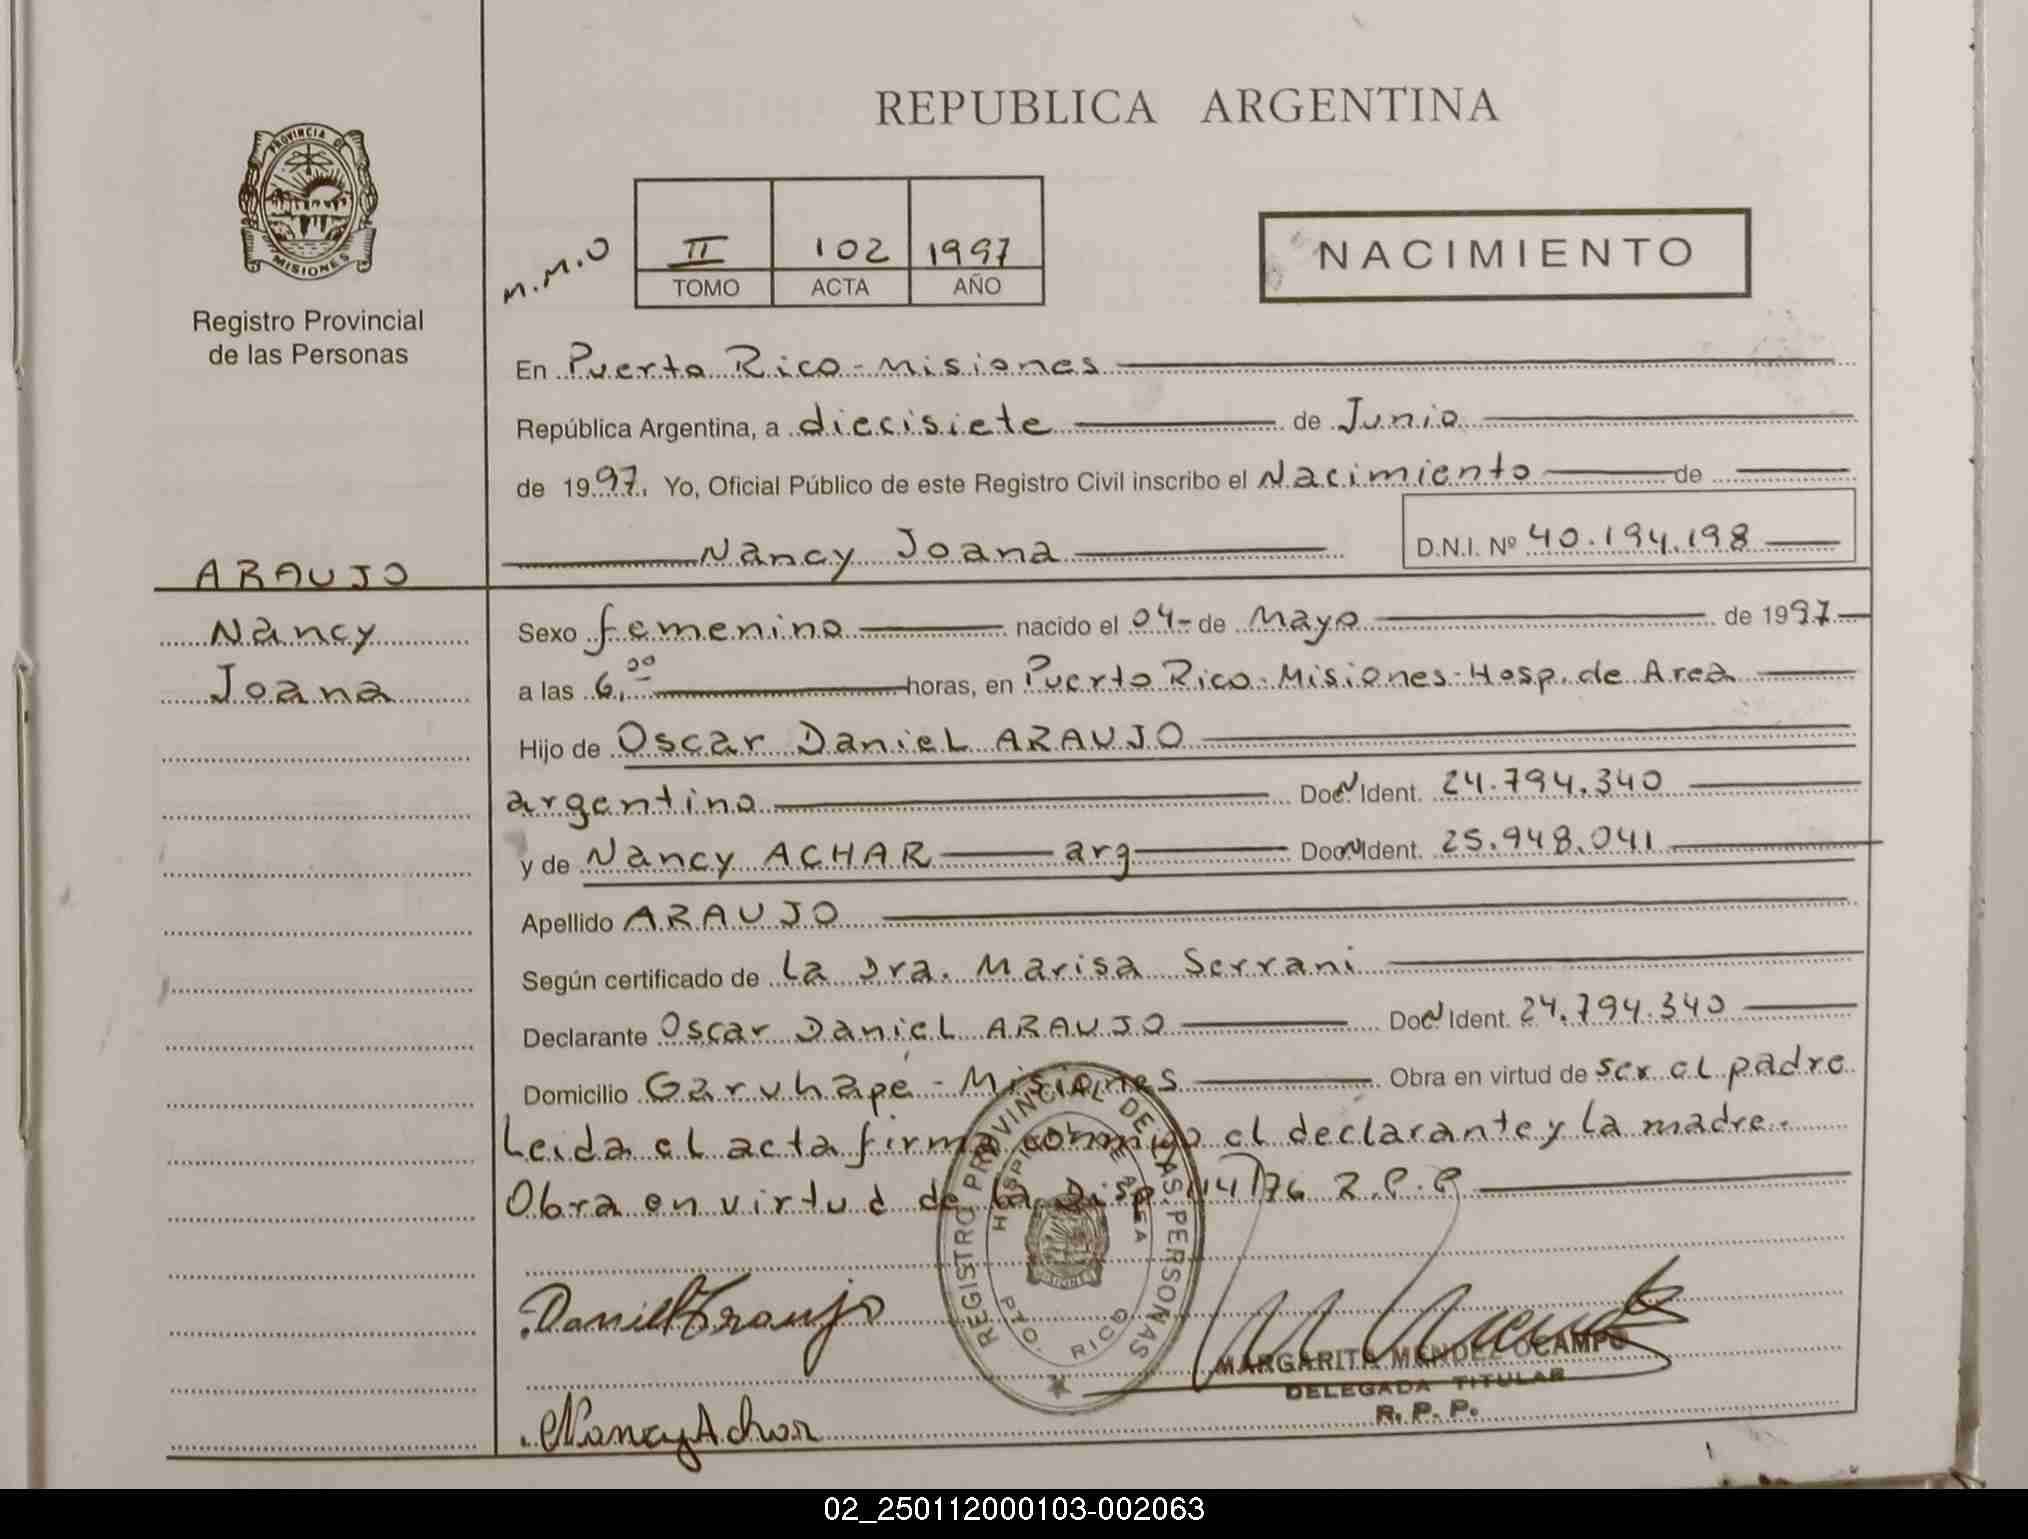 REPUBLICA ARGENTINA
PROVINCIA DE
MISIONES
Registro Provincial
de las Personas
M.M.O
II 102 1997
TOMO ACTA AÑO
NACIMIENTO
En Puerto Rico - Misiones
República Argentina, a diecisiete de Junio
de 1997. Yo, Oficial Público de este Registro Civil inscribo el Nacimiento de
Nancy Joana D.N.I. Nº 40.194.198
ARAUJO
Nancy
Joana
Sexo femenino nacido el 04- de Mayo de 1997
a las 6,00 horas, en Puerto Rico - Misiones - Hosp. de Area
Hijo de Oscar Daniel ARAUJO
argentino Doc. N Ident. 24.794.340
y de Nancy ACHAR arg Doc. N Ident. 25.948.041
Apellido ARAUJO
Según certificado de la Dra. Marisa Serrani
Declarante Oscar Daniel ARAUJO Doc. N Ident. 24.794.340
Domicilio Garuhape - Misiones Obra en virtud de ser el padre
Leida el acta firma conmigo el declarante y la madre.
Obra en virtud de la Disp 114/76 R.P.P
REGISTRO PROVINCIAL DE LAS PERSONAS
HOSPITAL DE AREA
PTO. RICO
MISIONES
Daniel Araujo
MARGARITA MENDEZ OCAMPO
DELEGADA TITULAR
R. P. P.
Nancy Achar
02_250112000103-002063